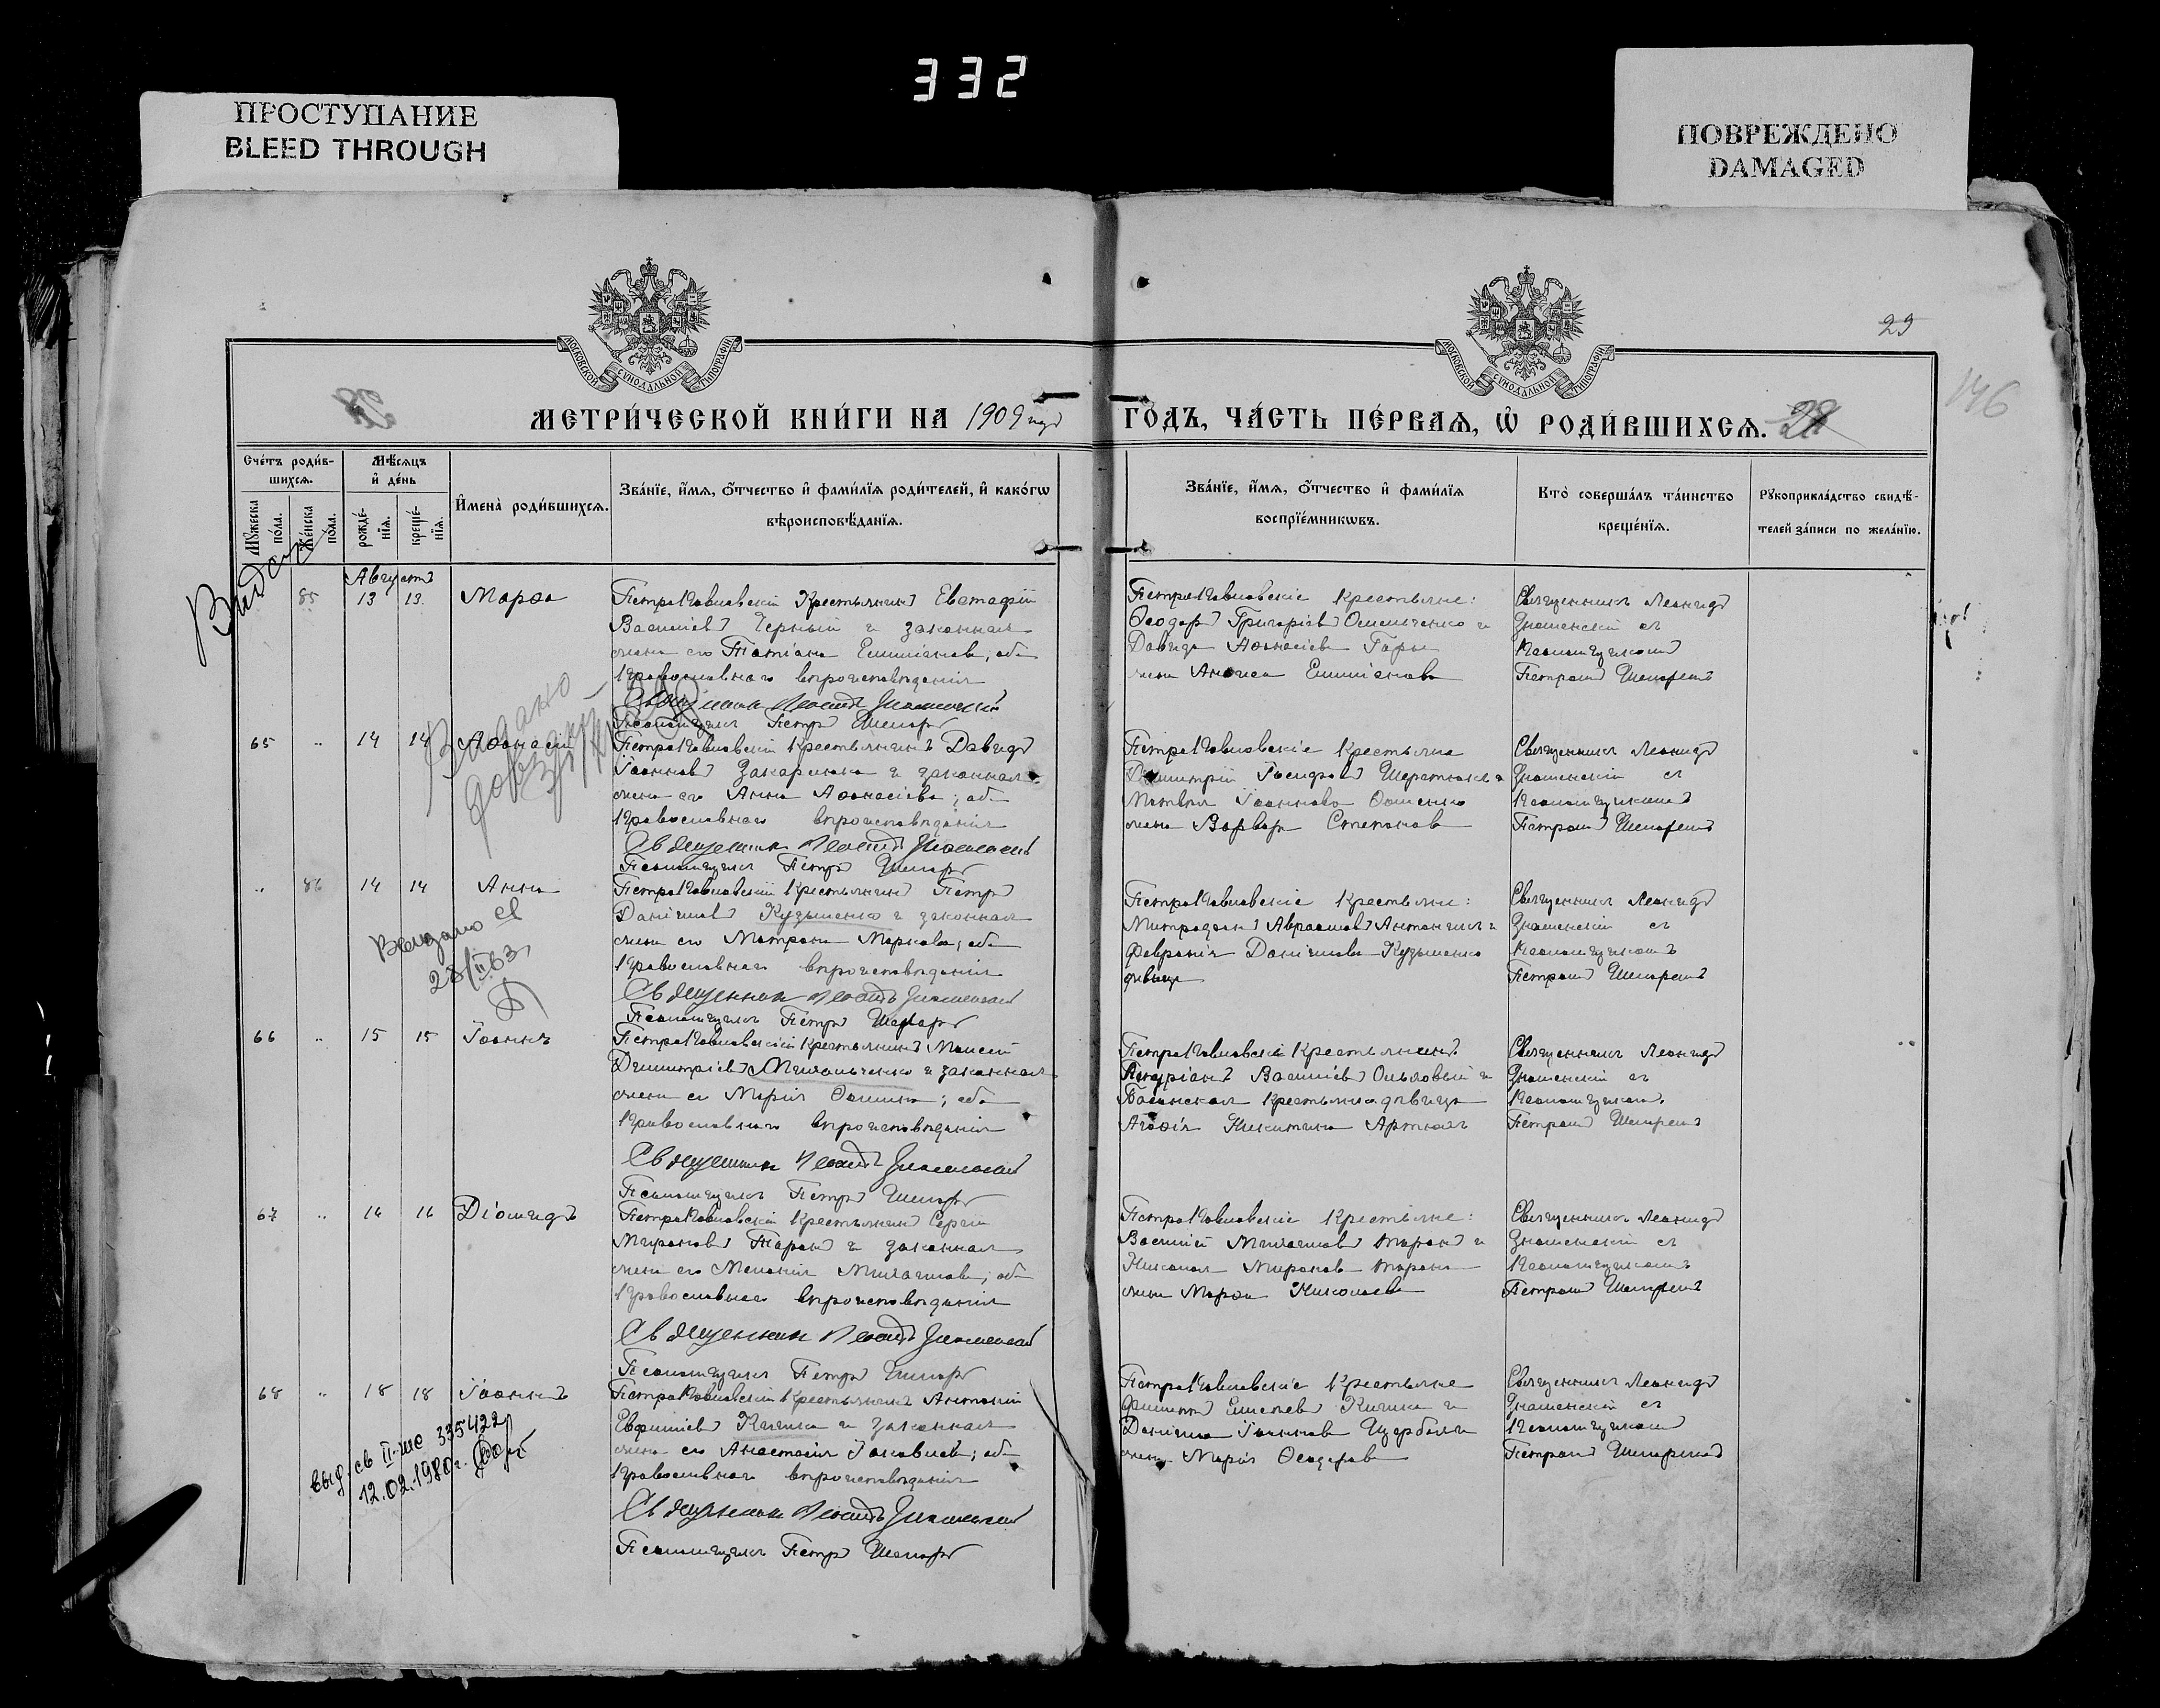 332
ПРОСТУПАНИЕ
BLEED THROUGH
ПОВРЕЖДЕНО
DAMAGED
МОСКОВСКОЙ СУНОДАЛЬНОЙ ТИПОГРАФІИ
МОСКОВСКОЙ СУНОДАЛЬНОЙ ТИПОГРАФІИ
29
146
МЕТРИ́ЧЕСКОЙ КНИ́ГИ НА 1909 годъ
ГО́ДЪ, ЧА́СТЬ ПЕ́РВАѦ, Ѡ҆ РОДИ́ВШИХСѦ. 28
Сче́тъ роди́в-
шихсѧ.
Мꙋжеска
по́ла.
Же́нска
по́ла.
Мѣ́сѧцъ
и҆ де́нь
рожде́-
нїѧ.
креще́-
нїѧ.
И҆мена̀ роди́вшихсѧ.
Зва́нїе, и҆́мѧ, ѻ҆́тчество и҆ фами́лїѧ роди́телей, и҆ како́гѡ
вѣроисповѣ́данїѧ.
Зва́нїе, и҆́мѧ, ѻ҆́тчество и҆ фами́лїѧ
воспрїе́мникѡвъ.
Кто̀ соверша́лъ та́инство
креще́нїѧ.
Рꙋкоприкла́дство свидѣ́-
телей за́писи по жела́нїю.
Августъ
85 13 13 Марѳа
Петропавловскій крестьянинъ Евстафій
Василіевъ Черный и законная
жена его Татіана Емиліанова, оба
православнаго вѣроисповѣданія
Священник Леонид Знаменский
Псаломщикъ Петръ Шепаръ
Петропавловскіе крестьяне:
Ѳеодоръ Григоріевъ Омельченко и
Давида Аѳанасіева
жена Анѳиса Емиліанова
Священникъ Леонидъ
Знаменскій съ
псаломщикомъ
Петромъ Шепаремъ
65 " 14 14 Аѳанасій
Петропавловскій крестьянинъ Давидъ
Іоанновъ Захарченко и законная
жена его Анна Аѳанасіева; оба
православнаго вѣроисповѣданія
Священник Леонид Знаменский
Псаломщикъ Петръ Шепаръ
Петропавловскіе крестьяне
Димитрій Іосифовъ и
Матвѣя Іоаннова
жена Варвара Степанова
Священникъ Леонидъ
Знаменскій съ
псаломщикомъ
Петромъ Шепаремъ
" 86 14 14 Анна
Петропавловскій крестьянинъ Петръ
Даніиловъ Кузьменко и законная
жена его Матрона Маркова; оба
православнаго вѣроисповѣданія
Священник Леонид Знаменский
Псаломщикъ Петръ Шепаръ
Выдано св
28/II 63
Петропавловскіе крестьяне:
Митрофанъ Авраамовъ и
Февронія Даніилова Кузьменко
дѣвица
Священникъ Леонидъ
Знаменскій съ
псаломщикомъ
Петромъ Шепаремъ
66 " 15 15 Іоаннъ
Петропавловскій крестьянинъ Моисей
Димитріевъ Михальченко и законная
жена его Марія Ѳомина; оба
православнаго вѣроисповѣданія
Священник Леонид Знаменский
Псаломщикъ Петръ Шепаръ
Петропавловскій крестьянинъ
Василіевъ и
крестьянка дѣвица
Агаѳія Никитина
Священникъ Леонидъ
Знаменскій съ
псаломщикомъ
Петромъ Шепаремъ
67 " 16 16 Діомидъ
Петропавловскій крестьянинъ Сергій
Мироновъ Таранъ и законная
жена его Меланія Михаилова; оба
православнаго вѣроисповѣданія
Священник Леонид Знаменский
Псаломщикъ Петръ Шепаръ
Петропавловскіе крестьяне:
Василій Михаиловъ Таранъ и
Николая Миронова Тарана
жена Марѳа Николаева
Священникъ Леонидъ
Знаменскій съ
псаломщикомъ
Петромъ Шепаремъ
68 " 18 18 Іоаннъ
Петропавловскій крестьянинъ Антоній
Евфиміевъ Качика и законная
жена его Анастасія Іаковлева; оба
православнаго вѣроисповѣданія
Священник Леонид Знаменский
Псаломщикъ Петръ Шепаръ
выд. св II-ше 335422
12.02.1980г.
Петропавловскіе крестьяне
Филиппъ и
Даніила Іоаннова Щербака
жена Марія Ѳеодорова
Священникъ Леонидъ
Знаменскій съ
псаломщикомъ
Петромъ Шепаремъ